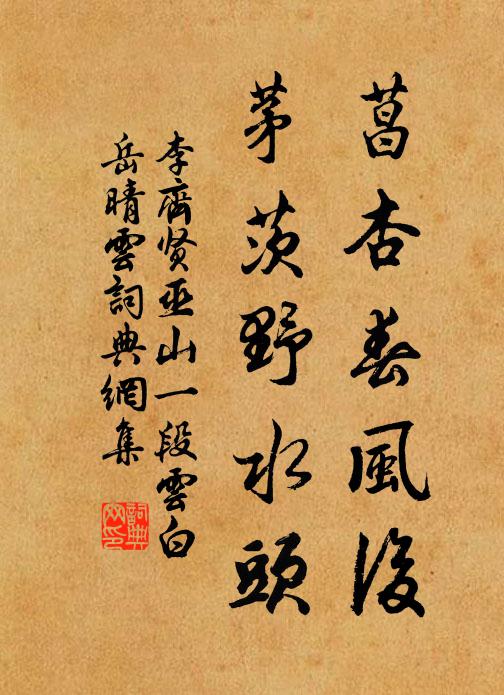 菖杏春風後
茅茨野水頭
李齊贤巫山一段雲白
岳晴雲詞典網集
詞典网印